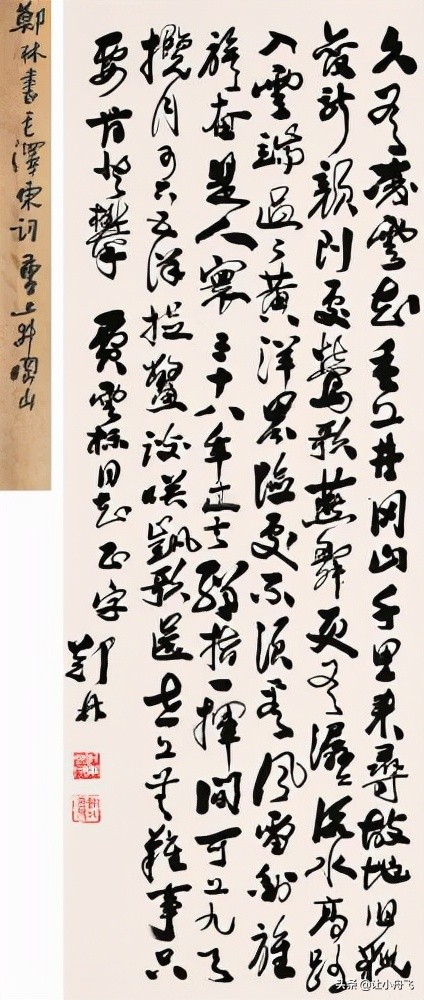 鄭林書毛澤東詞重上井岡山
久有凌雲志重上井冈山千里来尋故地旧貌
變新顔到處鶯歌燕舞更有潺潺流水高路
入雲端過了黄洋界險處不須看風雷動旌
旗奮是人寰三十八年過去彈指一揮間可上九天
攬月可下五洋捉鱉談咲凱歌還世上無難事只
要肯登攀 賈雲標同志正字
鄭林
头条 @让小舟飞